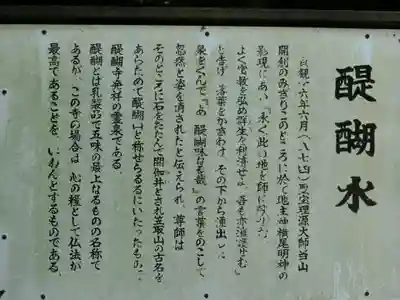 醍醐水
貞観十六年六月(八七四)聖宝理源大師当山
開創のみぎりこのところに於て地主神横尾明神の
影現にあい「永く此の地を師に献ず
よく密教を弘め群生を利済せよ 吾も亦擁護せむ」
と告げ、落葉をかきわけ、その下から湧出し
泉をくんで『あゝ醍醐味なる哉』の言葉をのこして
忽然と姿を消されたと伝えられ、尊師は
そのところに石をたたんで閼伽井とされ笠取山の古名を
あらためて醍醐山と称せらるるにいたったもので
醍醐寺発祥の霊泉である
醍醐とは乳製品で五味の最上なるものの名称で
あるが、この寺の場合は 心の糧として仏法が
最高であることを、いわんとするものである。